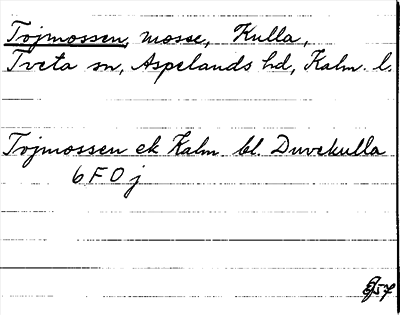 Tojmossen, mosse, Kulla,
Tveta sn, Aspelands hd, Kalm. l.
Tojmossen ek Kalm bl. Duvekulla
6F0j